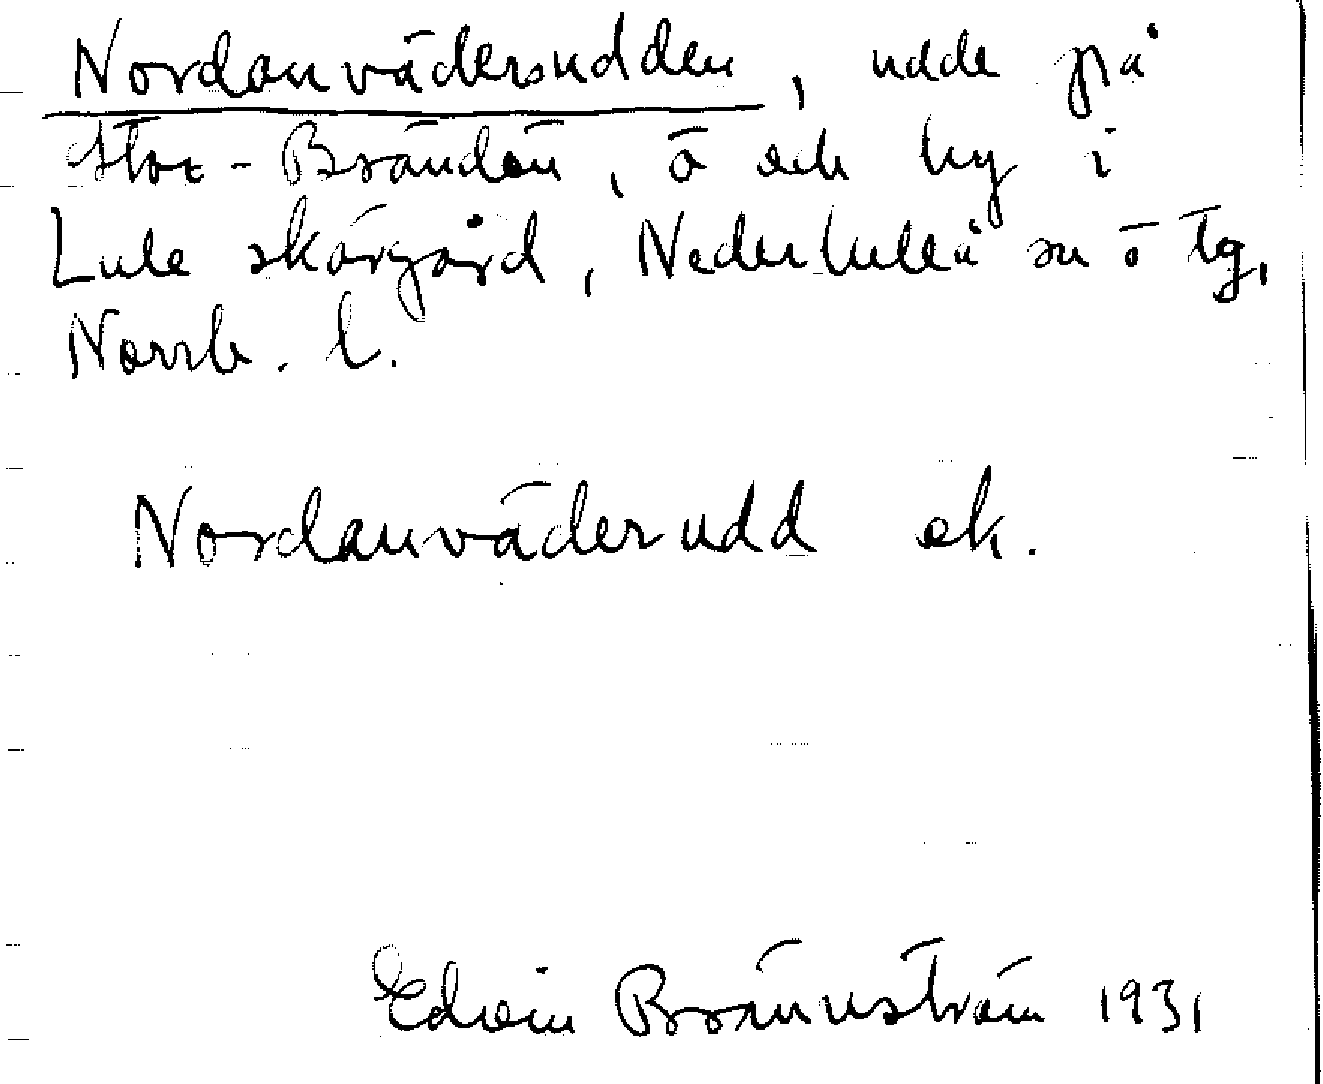 Nordanvädersudden, udde på
Stor-Brändön, ö och by i
Lule skärgård, Nederluleå sn ö tg,
Norrb. l.
Nordanväderudd ek.
Edvin Brännström 1931